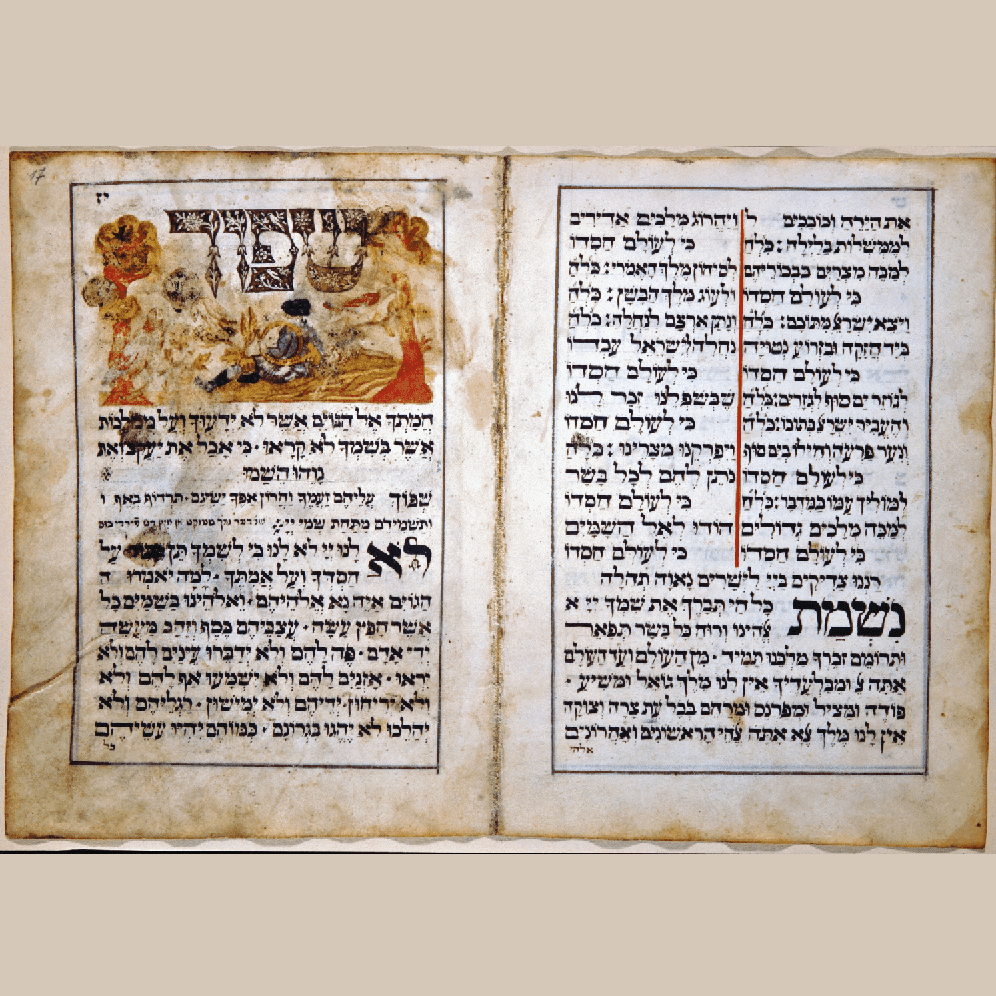 את הירח וכוכבים ל
לממשלות בלילה : כלח
למכה מצרים בבכוריהם
כי לעולם חסדו
ויצא ישר' מתוכם : כלח
ביד חזקה ובזרוע נטויה
כי לעולם חסדו
לגוזר ים סוף לגזרים : כלח
והעביר ישר' בתוכו : כלח
ונער פרעה וחילו בים סוף
כי לעולם חסדו
למוליך עמו במדבר : כלח
למכה מלכים גדולים
כי לעולם חסדו
ויהרוג מלכים אדירים
כי לעולם חסדו
לסיחון מלך האמרי : כלח
ולעוג מלך הבשן : כלח
ונתן ארצם לנחלה : כלח
נחלה לישראל עבדו
כי לעולם חסדו
שבשפלנו זכר לנו
כי לעולם חסדו
ויפרקנו מצרינו : כלח
נתן לחם לכל בשר
כי לעולם חסדו
הודו לאל השמים
כי לעולם חסדו
רננו צדיקים ביי לישרים נאוה תהלה
נשמת כל חי תברך את שמך יי א
אהינו ורוח כל בשר תפאר
ותרומם זכרך מלכנו תמיד · מן העולם ועד העולם
אתה א ומבלעדיך אין לנו מלך גואל ומשיע ·
פודה ומציל ומפרנס ומרחם בכל עת צרה וצוקה
אין לנו מלך אא אתה אהי הראשונים ואחרונים
אלהי
17
יז
שפוך
חמתך אל הגוים אשר לא ידעוך ועל ממלכות
אשר בשמך לא קראו · כי אכל את יעקב ואת
נוהו השמו
שפוך עליהם זעמך וחרון אפך ישיגם · תרדוף באף ו
ותשמידם מתחת שמי יי :
לא לנו יי לא לנו כי לשמך תן כבוד על
חסדך ועל אמתך · למה יאמרו ה
הגוים איה נא אלהיהם · ואלהינו בשמים כל
אשר חפץ עשה · עצביהם כסף וזהב מעשה
ידי אדם · פה להם ולא ידברו עינים להם ולא
יראו · אזנים להם ולא ישמעו אף להם ולא
ולא יריחון · ידיהם ולא ימישון · רגליהם ולא
יהלכו לא יהגו בגרונם · כמוהם יהיו עשיהם
כל